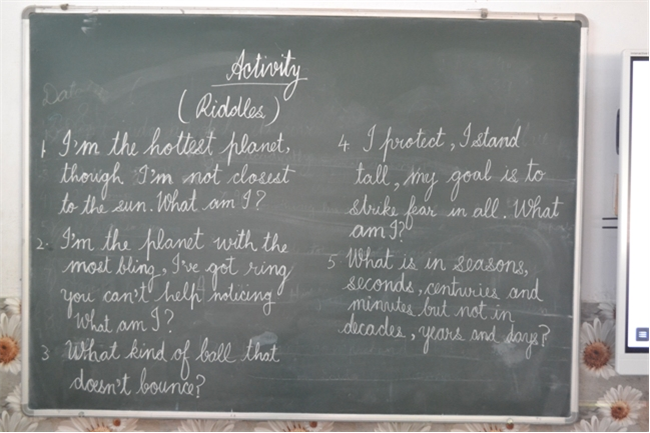 Activity
(Riddles)
1. I'm the hottest planet,
though I'm not closest
to the sun. What am I?
2. I'm the planet with the
most bling, I've got ring
you can't help noticing
What am I?
3 What kind of ball that
doesn't bounce?
4 I protect, I stand
tall, my goal is to
strike fear in all. What
am I?
5 What is in seasons,
seconds, centuries and
minutes but not in
decades, years and days?